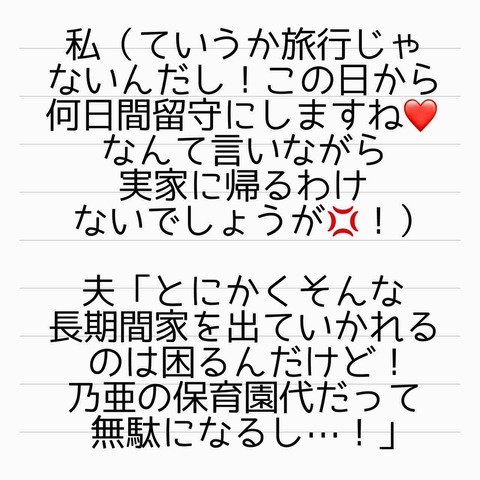 私（ていうか旅行じゃ
ないんだし！この日から
何日間留守にしますね❤️
なんて言いながら
実家に帰るわけ
ないでしょうが💢！）
夫「とにかくそんな
長期間家を出ていかれる
のは困るんだけど！
乃亜の保育園代だって
無駄になるし…！」